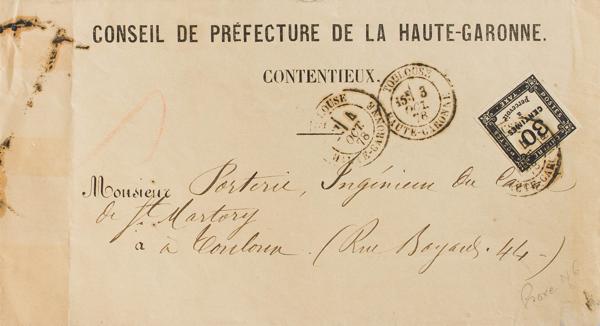 CONSEIL DE PRÉFECTURE DE LA HAUTE-GARONNE.
CONTENTIEUX.
TOULOUSE
5
OCT.
78
HAUTE-GARONNE
4
OCT
78
POSTES
30
CENTIMES
Percevoir
TAXE
Monsieur Porterie, Ingénieur Du
de St Martory
a à Toulouse (Rue Bayard 44-)